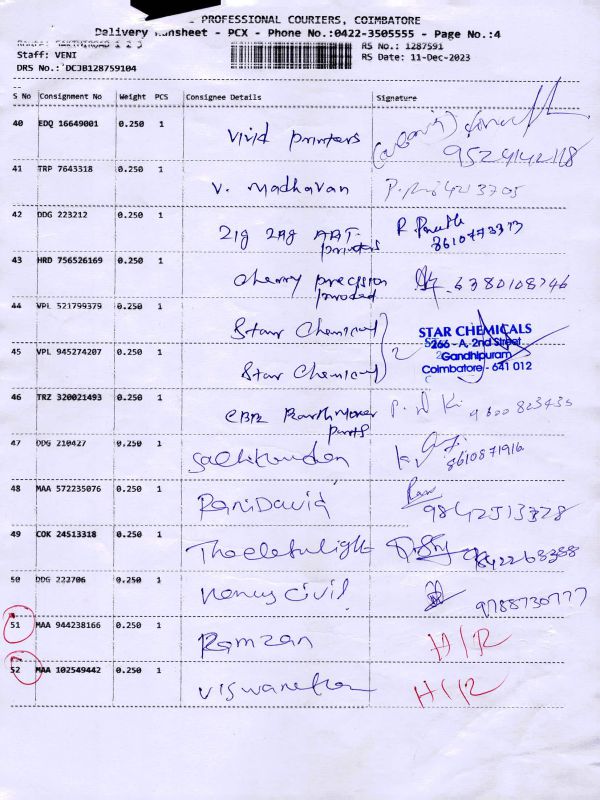 PROFESSIONAL COURIERS, COIMBATORE
Delivery Runsheet - PCX - Phone No.:0422-3505555 - Page No.:4
1 2 3
RS No.: 1287591
Staff: VENI
RS Date: 11-Dec-2023
DRS No.: DCJB128759104
S No Consignment No Weight PCS Consignee Details Signature
40 EDQ 16649001 0.250 1 Vivid printers
9524142118
41 TRP 7643318 0.250 1 V. Madhavan
42 DDG 223212 0.250 1 Zig Zag ART
printers
8610773373
43 HRD 756526169 0.250 1 Cherry precision
6380108746
44 VPL 521799379 0.250 1 Star Chemical
45 VPL 945274207 0.250 1 Star Chemical
2
STAR CHEMICALS
266 - A, 2nd Street
Gandhipuram
Coimbatore - 641 012
46 TRZ 320021493 0.250 1 Earthmover
parts
9600823435
47 DDG 210427 0.250 1
8610871916
48 MAA 572235076 0.250 1 Rani David
9842513728
49 COK 24513318 0.250 1
50 DDG 222706 0.250 1 civil
9788730777
51 MAA 944238166 0.250 1 Ramzan H/R
52 MAA 102549442 0.250 1 Viswanathan H/R